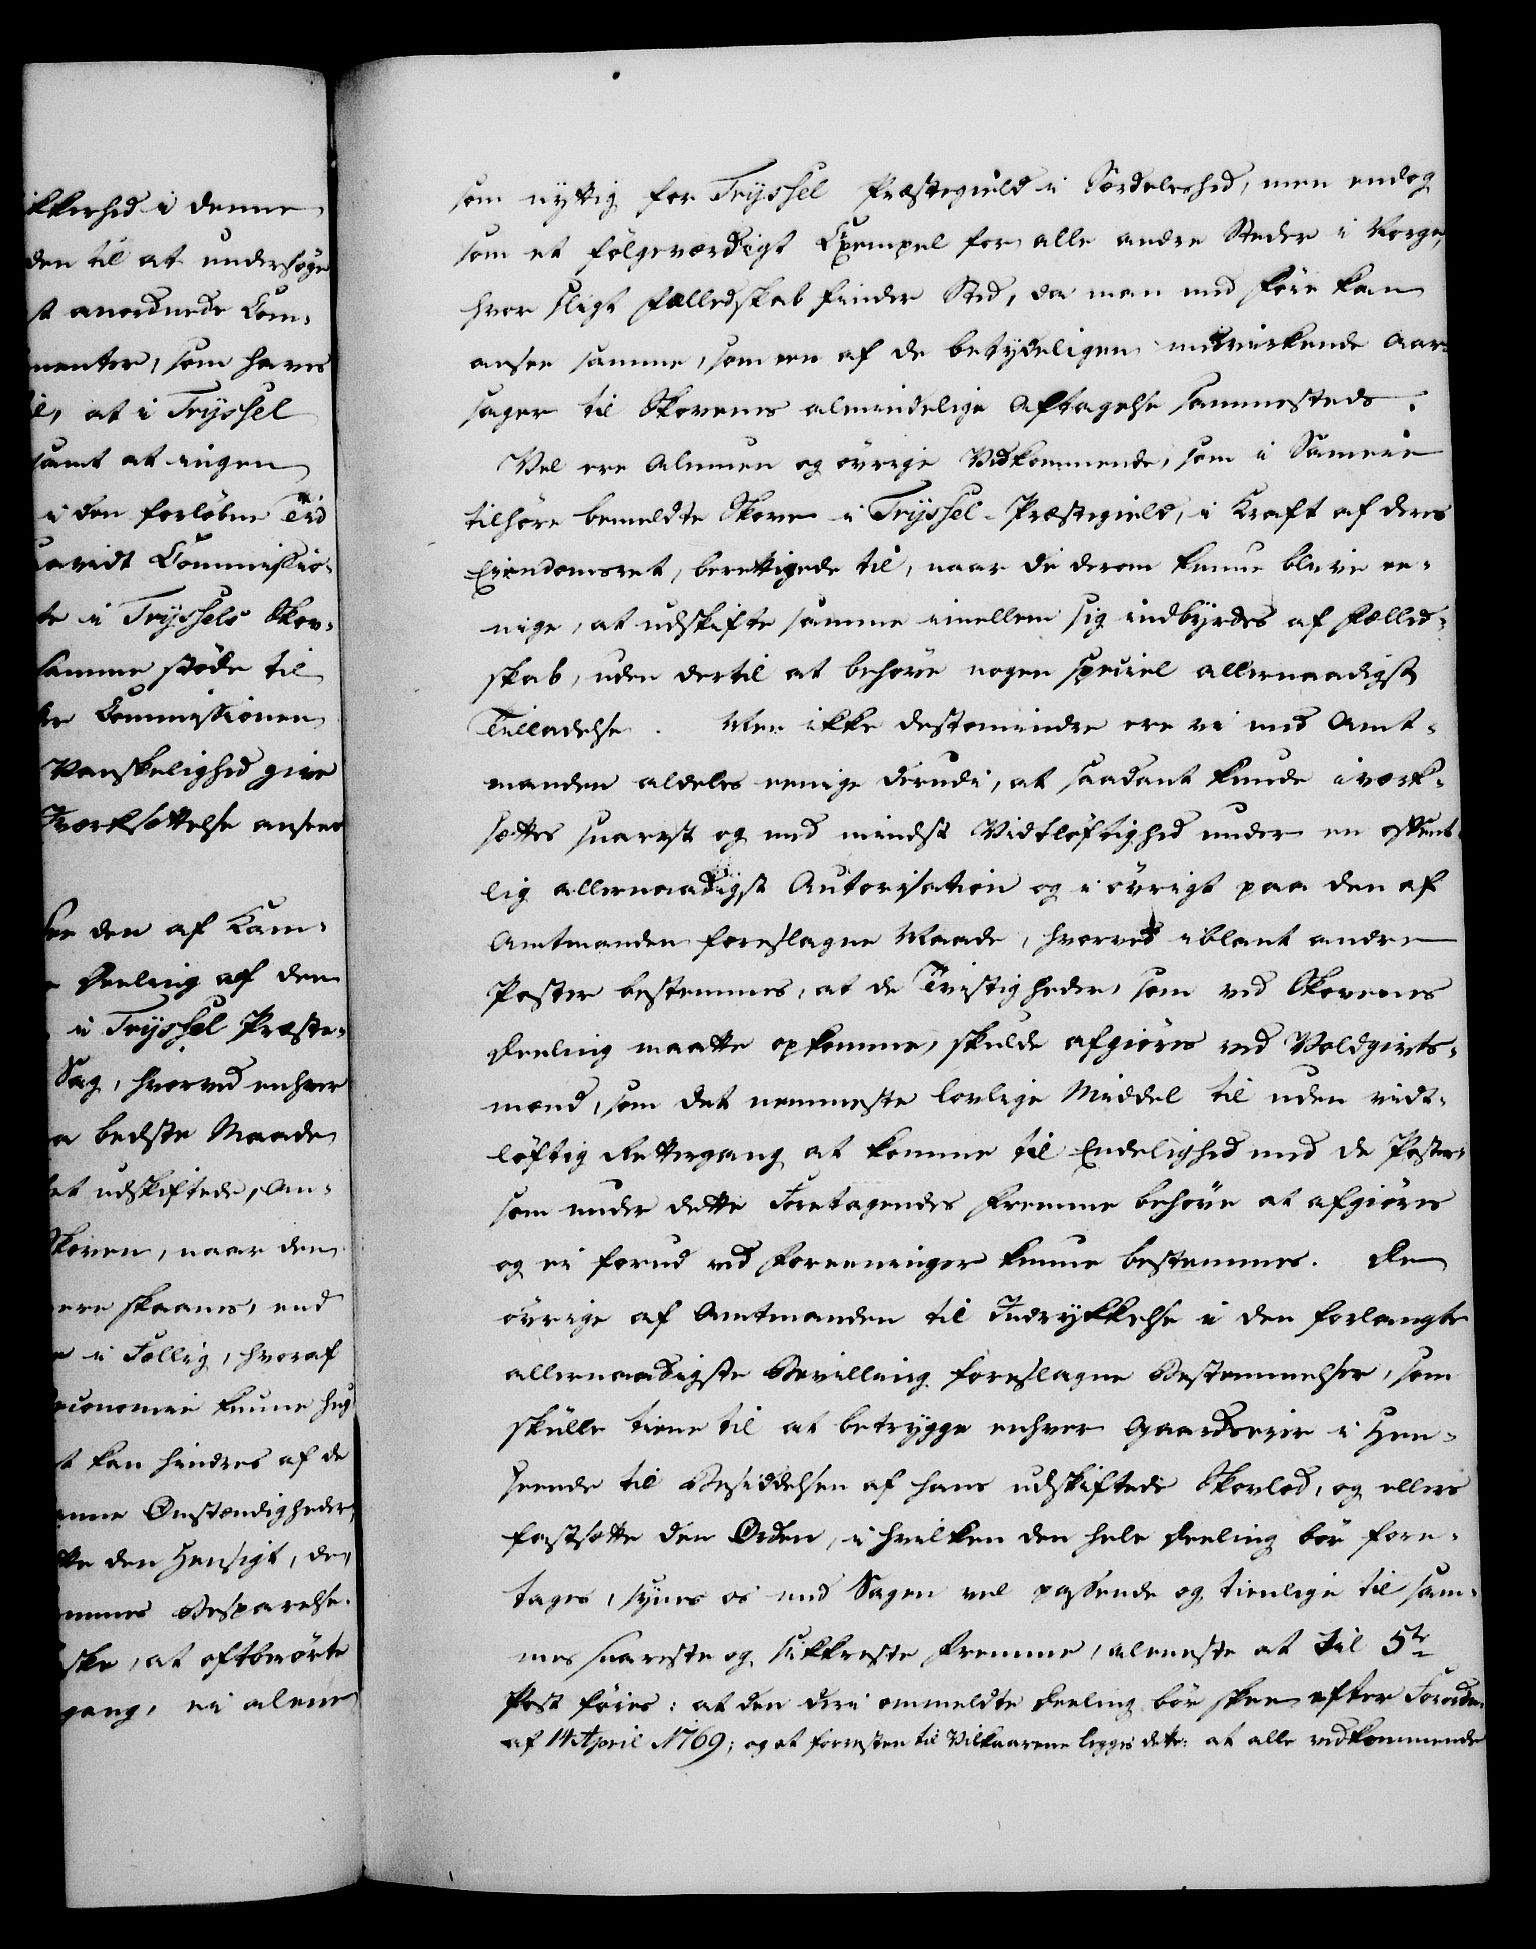 ikkerhed i denne
den til at undersøge
st anordnede Com-
menter, som haves
il, at i Tryssel
samt at ingen
i den forløbne Tid
savidt Commissio-
te i Tryssels Skov-
samme støde til
Commissionen
Vanskelighed give
Iværksættelse ansees
den af Cam-
Deeling af den
i Tryssel Præste-
Sag, hvorved enhver
bedste Maade
et udskiftede, An-
Skoven, naar den
ere skaanes, end
i Fællig, hvoraf
oeconomie kunne hug-
t kan hindres af de
Omstændigheder,
den Hensigt, de,
Besparelse.
ske, at oftberørte
gang, ei alene
som nyttig for Tryssel Præstegield i Særdeleshed, men endog
som et følgeværdigt Exempel for alle andre Steder i Norge,
hvor sligt Fælledskab finder Sted, da man med Føie kan
ansee samme, som een af de betydeligen medvirkende Aar-
sager til Skovenes almindelige Aftagelse sammesteds.
Vel ere Almuen og øvrige Vedkommende, som i Sameie
tilhøre bemeldte Skove i Tryssel-Præstegield, i Kraft af deres
Eiendomsret, berettigede til, naar de derom kunne blive ee-
nige, at udskifte samme imellem sig indbyrdes af Fælled-
skab, uden dertil at behøve nogen speciel allernaadigst
Tilladelse. Men ikke destomindre ere vi med Amt-
manden aldeles eenige derudi, at saadant kunde iværk-
sættes snarest og med mindst Vidtløftighed under en offent-
lig allernaadigst Autorisation og i øvrigt paa den af
Amtmanden foreslagne Maade, hvorved iblant andre
Poster bestemmes, at de Tvistigheder, som ved Skovenes
Deeling maatte opkomme, skulde afgiøres ved Voldgivts-
mænd, som det nemmeste lovlige Middel til uden vidt-
løftig Rettergang at komme til Endelighed med de Poster
som under dette Foretagendes Fremme behøve at afgiøres
og ei forud ved Foreeninger kunne bestemmes. De
øvrige af Amtmanden til Indrykkelse i den forlangte
allernaadigste Bevilling foreslagne Bestemmelser, som
skulle tiene til at betrygge enhver Gaardeier i Hen-
seende til Besiddelsen af hans udskiftede Skovlod, og ellers
fastsætte den Orden, i hvilken den hele Deeling bør fore-
tages, synes os med Sagen vel passende og tienlige til sam-
mes snareste og sikkreste Fremme, aleneste at til 5te
Post føies: at den deri ommeldte Deeling bør skee efter Forordn:
af 14 April 1769; og at forresten til Vilkaarene legges dette: at alle vedkommende